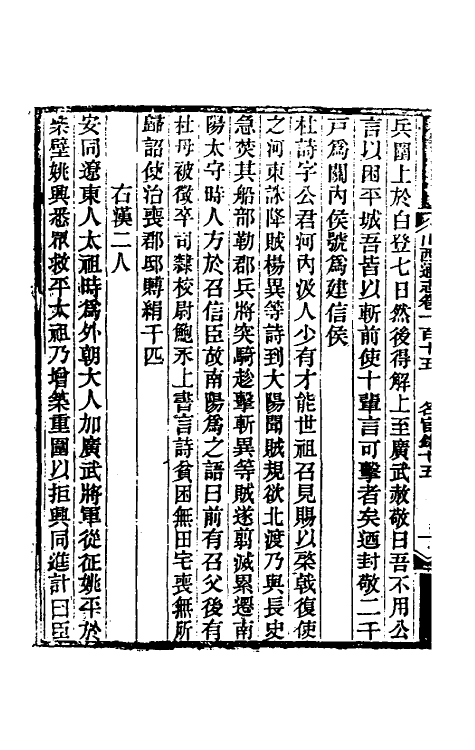 山西通志卷一百十五　名宦錄十五　一
兵圍上於白登七日然後得解上至廣武赦敬曰吾不用公
言以困平城吾皆以斬前使十輩言可擊者矣迺封敬二千
戸爲關內侯號爲建信侯
杜詩字公君河內汲人少有才能世祖召見賜以棨戟復使
之河東誅降賊楊異等詩到大陽聞賊規欲北渡乃與長史
急焚其船部勒郡兵將突騎趁擊斬異等賊遂翦滅累遷南
陽太守時人方於召信臣故南陽爲之語曰前有召父後有
杜母被徵卒司隸校尉鮑永上書言詩貧困無田宅喪無所
歸詔使治喪郡邸賻絹千匹
右漢二人
安同遼東人太祖時爲外朝大人加廣武將軍從征姚平於
柴壁姚興悉眾救平太祖乃增築重圍以拒興同進計曰臣